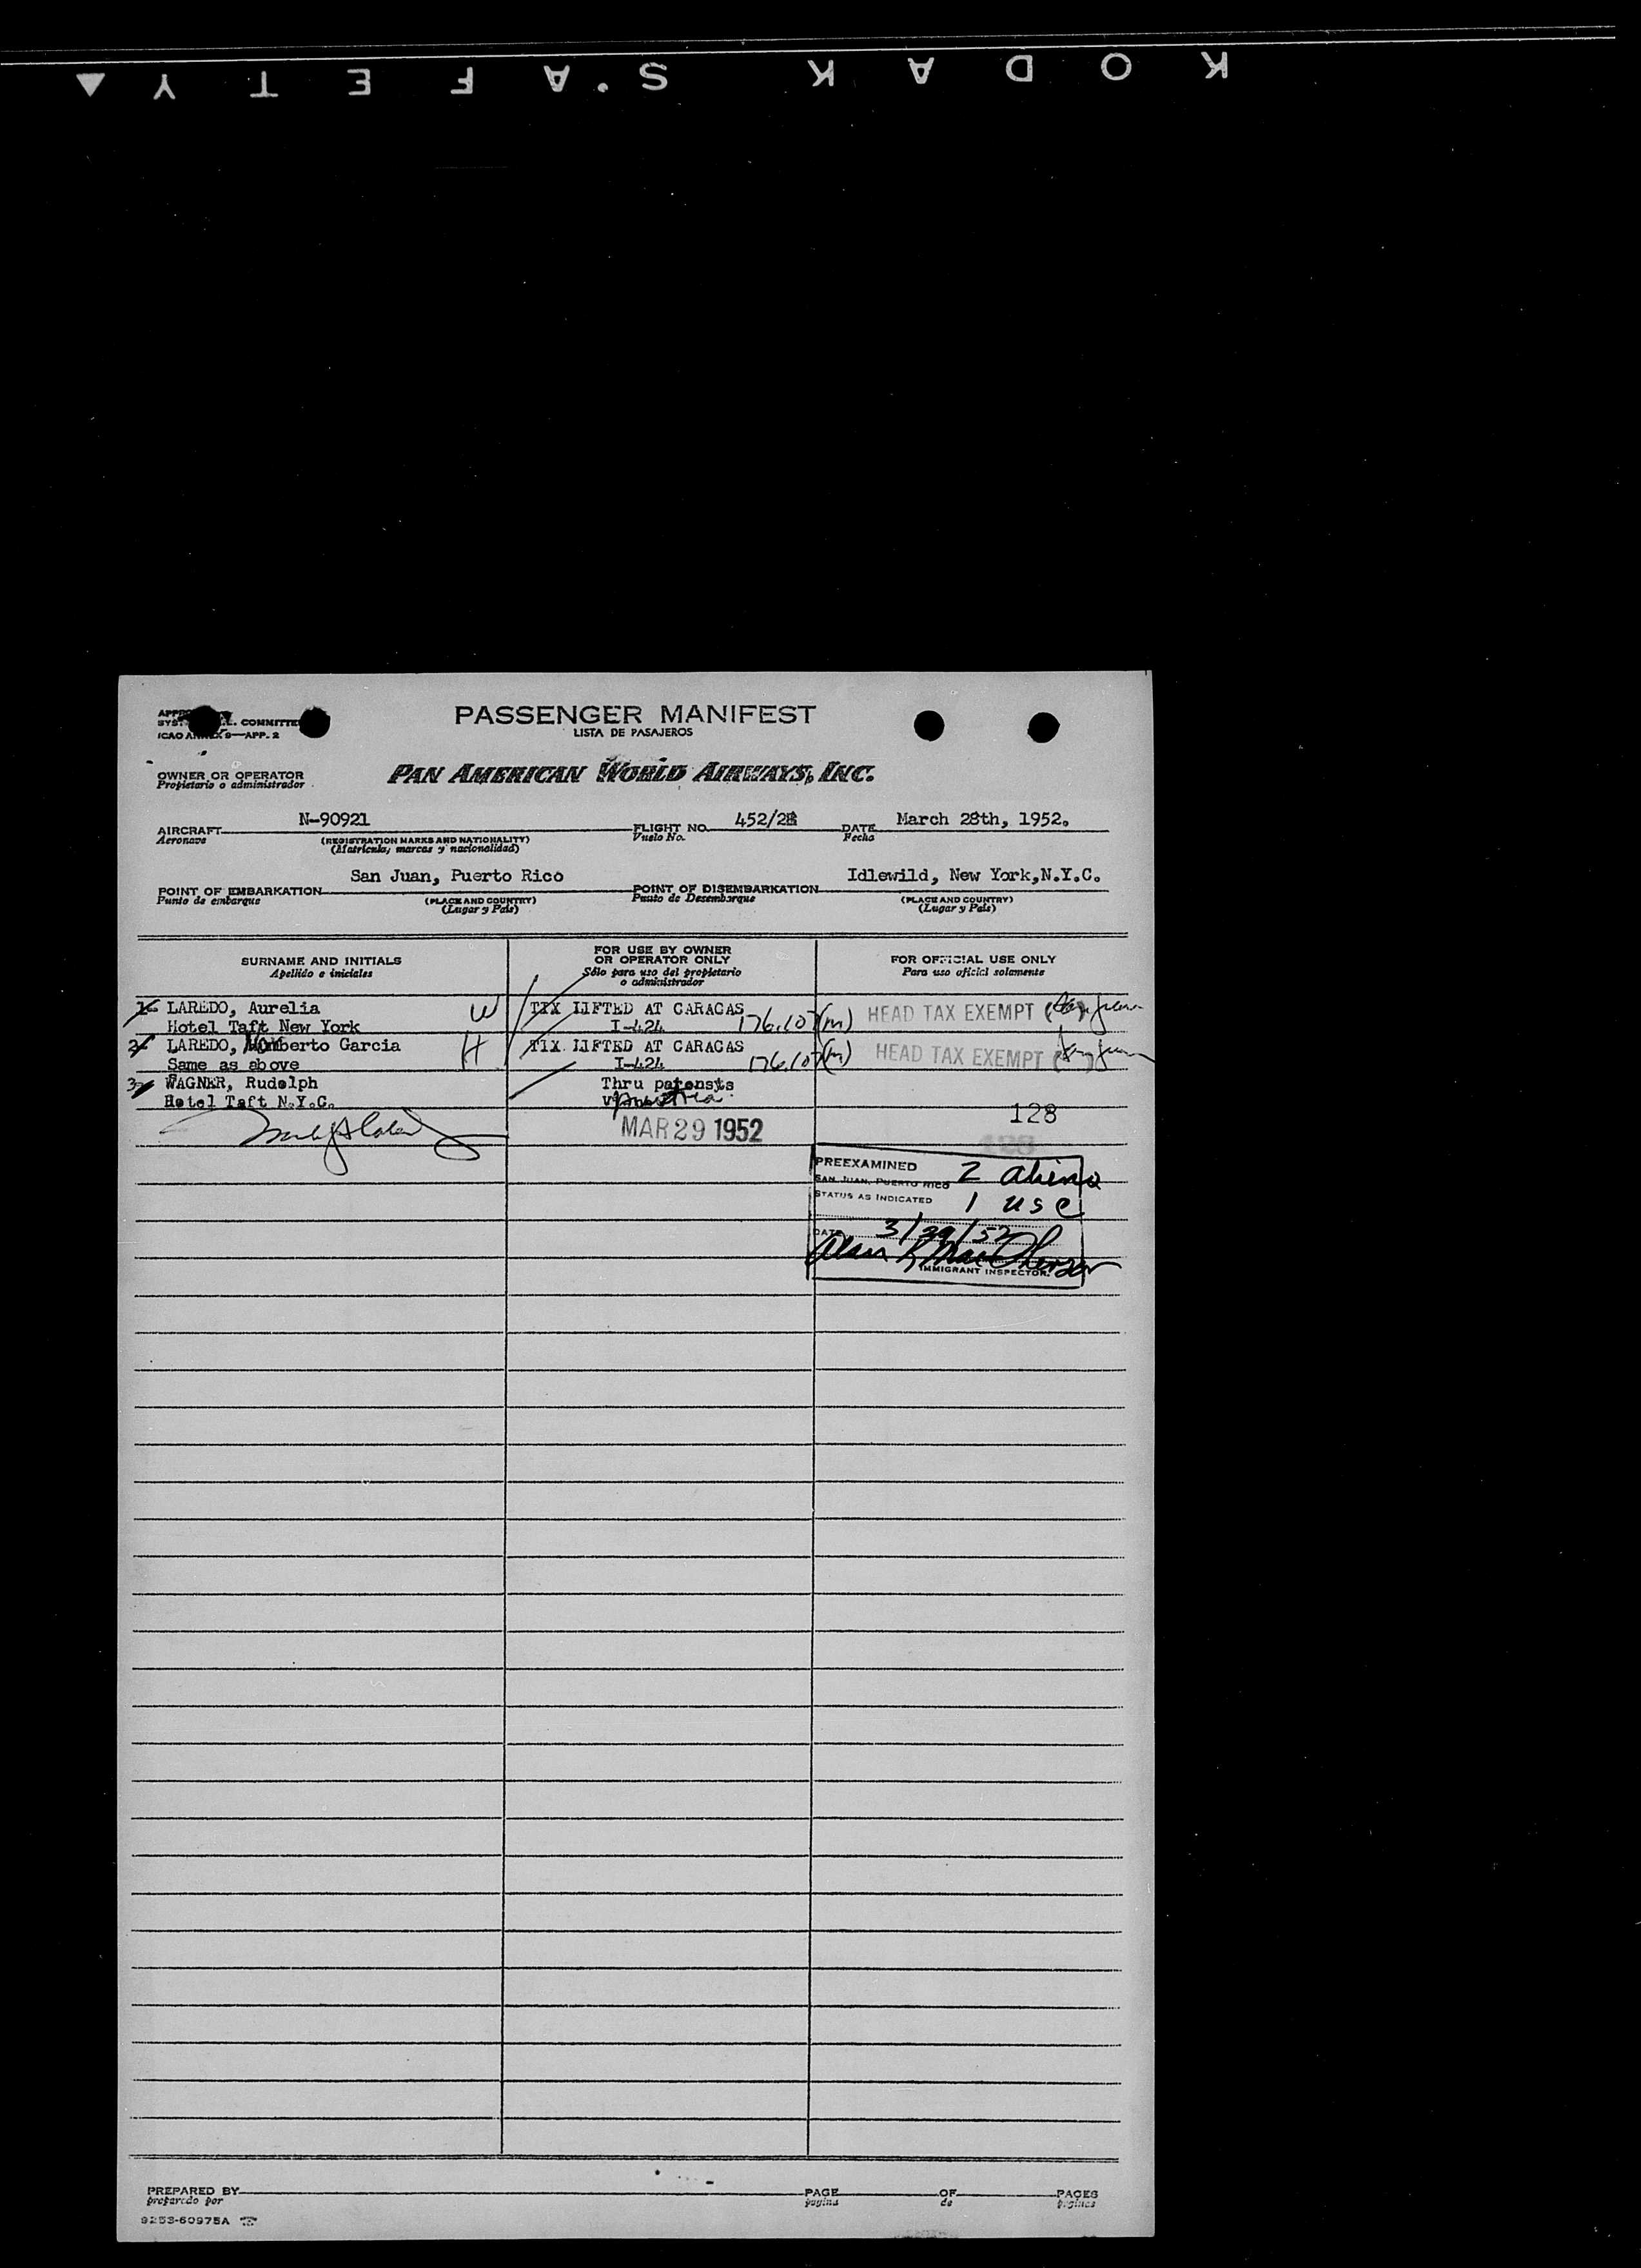 KODAK SAFETY
PASSENGER MANIFEST
LISTA DE PASAJEROS
COMMITTEE
ICAO ANNEX 9—APP. 2
OWNER OR OPERATOR
Propietario o administrador
PAN AMERICAN WORLD AIRWAYS, INC.
AIRCRAFT N-90921 FLIGHT NO. 452/28 DATE March 28th, 1952.
Aeronave (REGISTRATION MARKS AND NATIONALITY) Vuelo No. Fecha
(Matricula, marcas y nacionalidad)
POINT OF EMBARKATION San Juan, Puerto Rico POINT OF DISEMBARKATION Idlewild, New York,N.Y.C.
Punto de embarque (PLACE AND COUNTRY) Punto de Desembarque (PLACE AND COUNTRY)
(Lugar y País) (Lugar y País)
SURNAME AND INITIALS
Apellido e iniciales
FOR USE BY OWNER
OR OPERATOR ONLY
Sólo para uso del propietario
o administrador
FOR OFFICIAL USE ONLY
Para uso oficial solamente
1 LAREDO, Aurelia W TIX LIFTED AT CARACAS HEAD TAX EXEMPT
Hotel Taft New York I-424 176.107(m)
2 LAREDO, Humberto Garcia H TIX LIFTED AT CARACAS HEAD TAX EXEMPT
Same as above I-424 176.107(m)
3 WAGNER, Rudolph Thru
Hotel Taft N.Y.C.
128
MAR 29 1952
128
PREEXAMINED 2 aliens
SAN JUAN, PUERTO RICO
STATUS AS INDICATED 1 USC
DATE 3/29/52
IMMIGRANT INSPECTOR.
PREPARED BY PAGE OF PAGES
preparado por pagina de paginas
9253-60975A